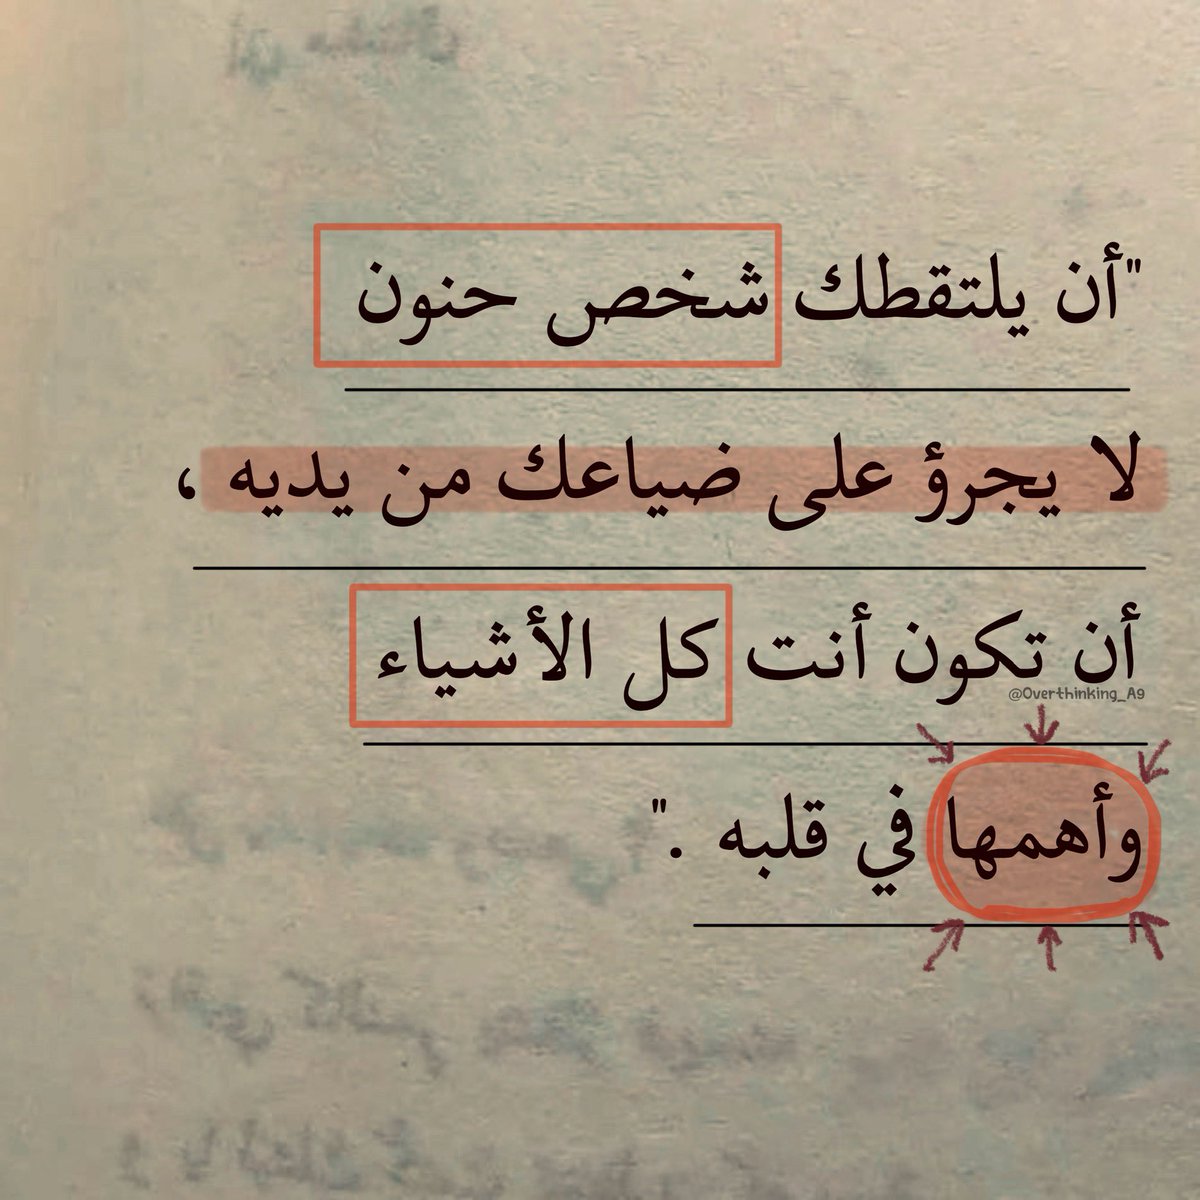 "أن يلتقطك شخص حنون
لا يجرؤ على ضياعك من يديه ،
أن تكون أنت كل الأشياء
@Overthinking_A9
وأهمها في قلبه ."